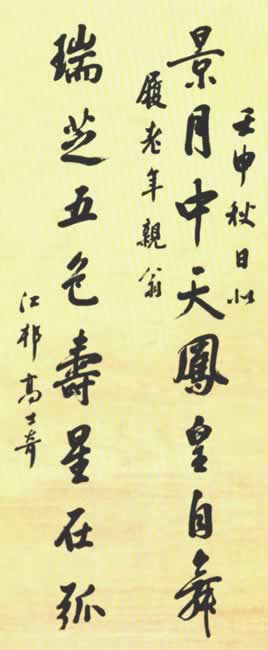 壬申秋日似
景月中天鳳皇自舞
履老年親翁
瑞芝五色壽星在弧
江邨高士奇